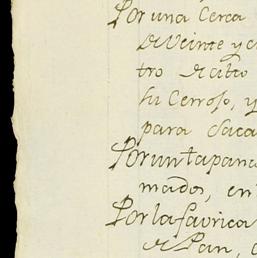 Por una Cerca
de Veinte y
tro de alto
su Cerrojo, y
para Saca
Por un tapanc
mados, en
Por la favrica
de Pan,